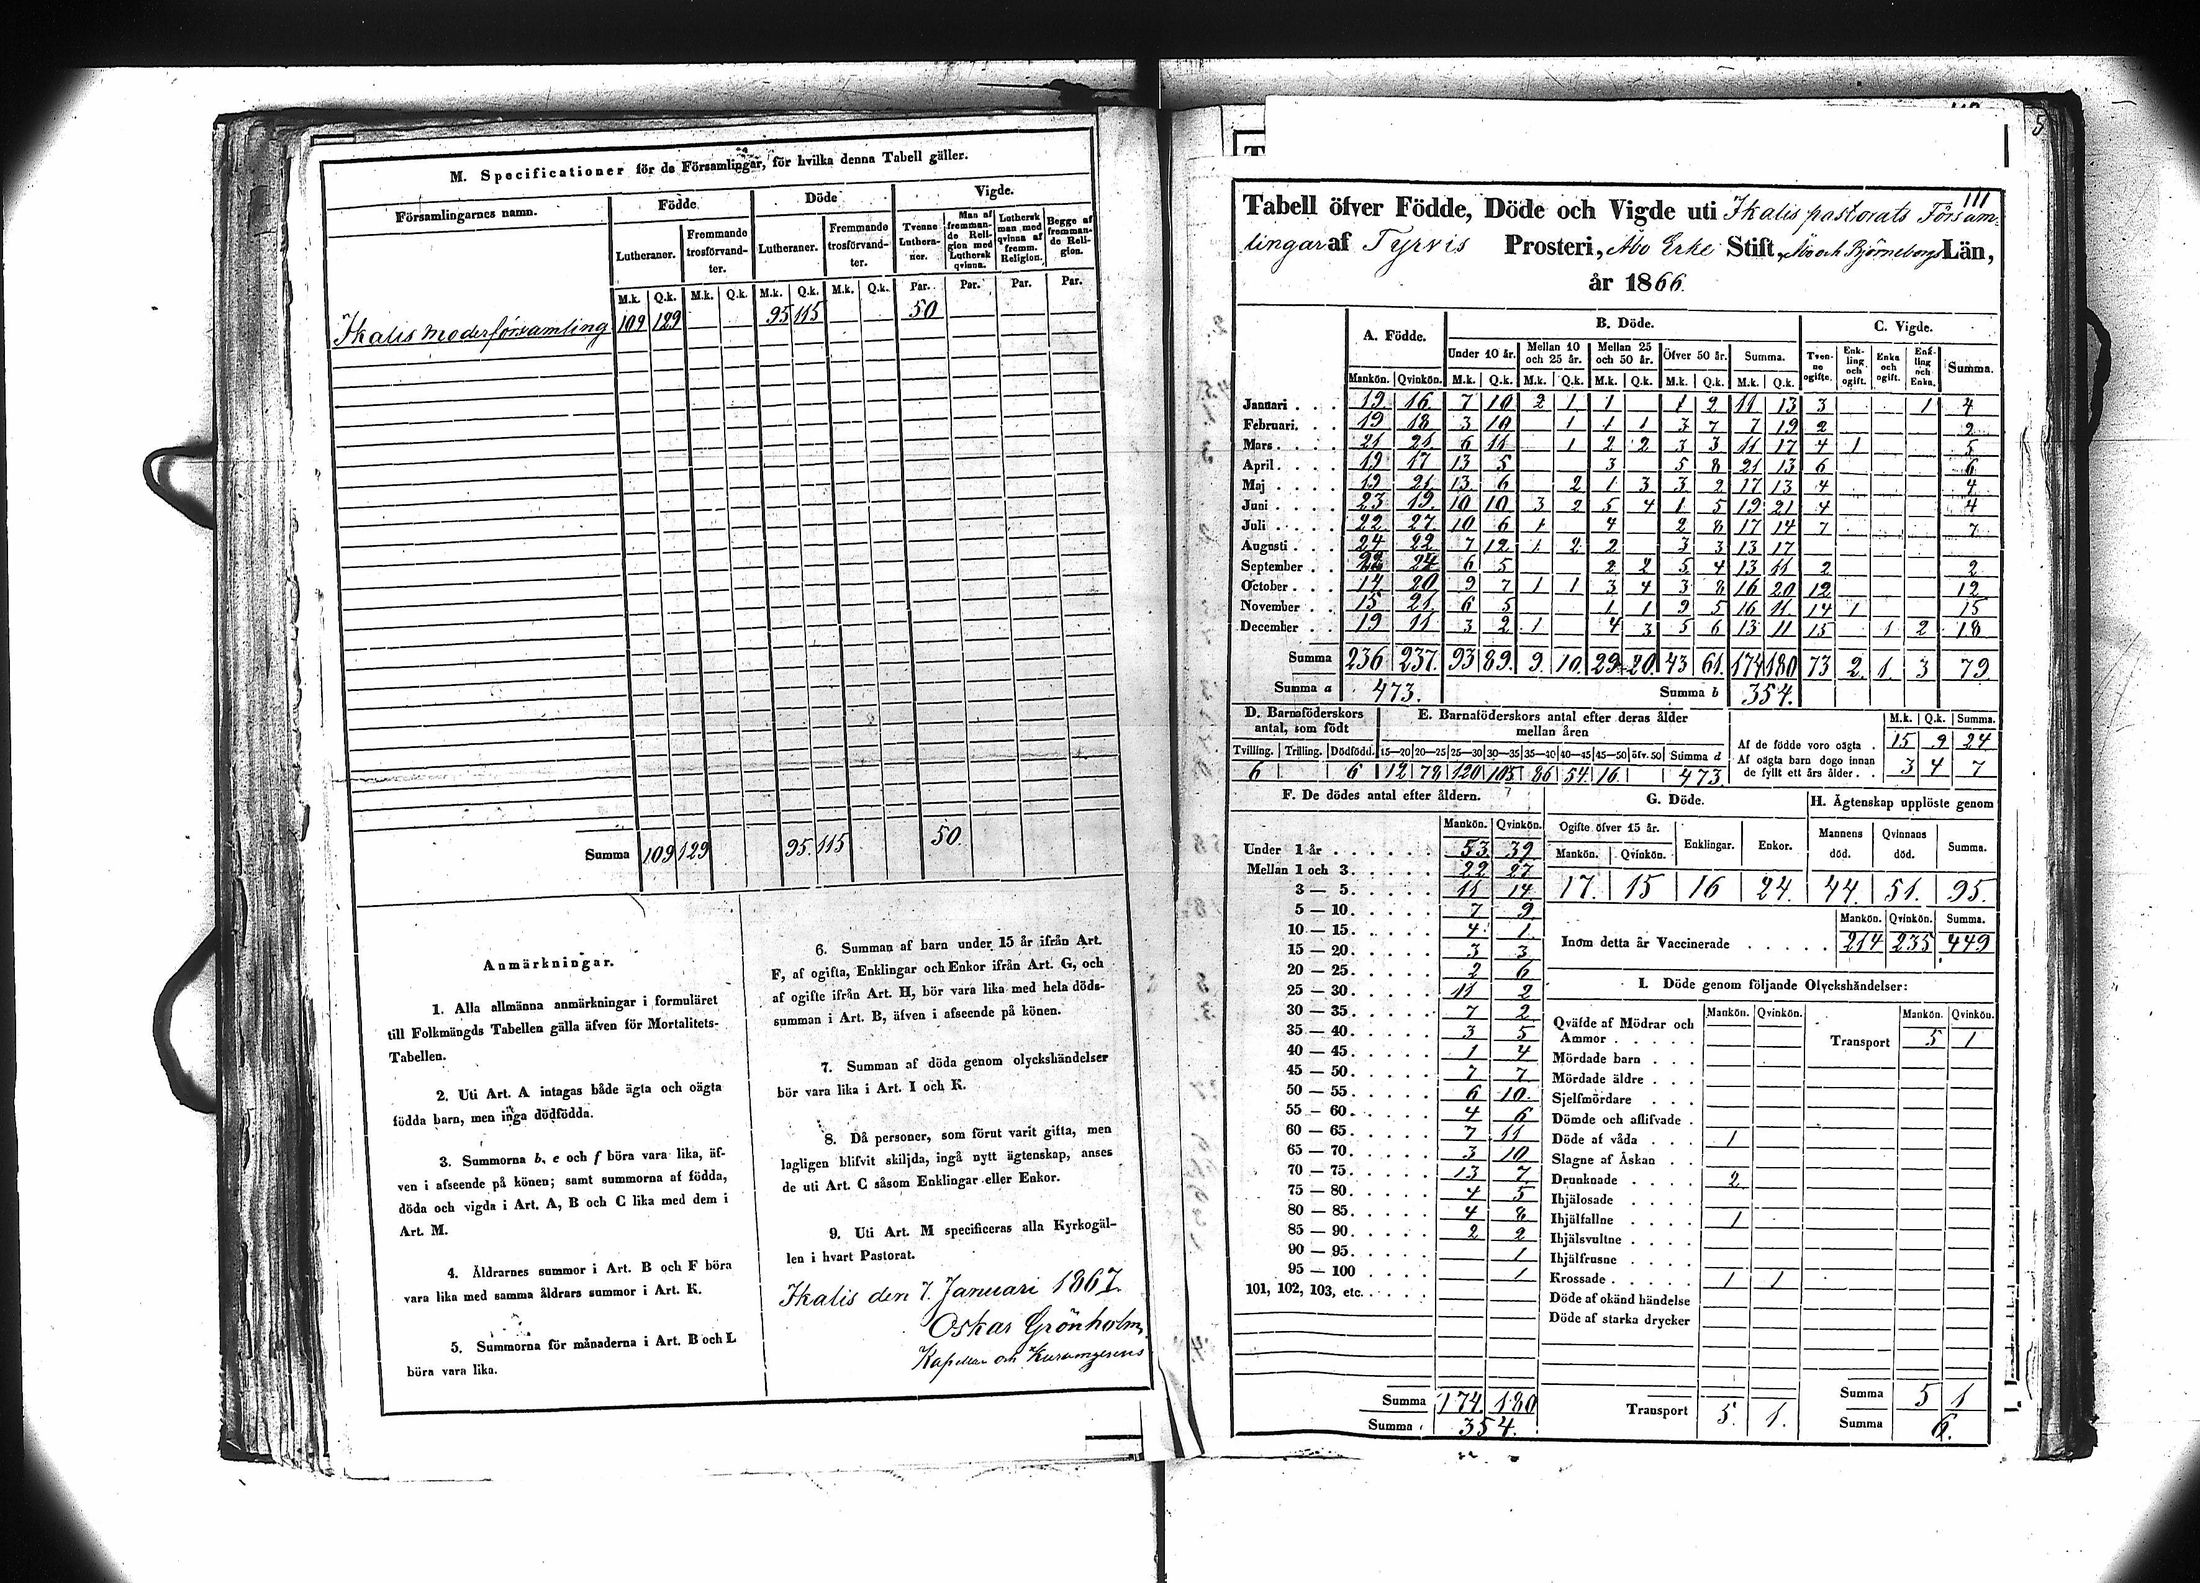 M. Specificationer för de Församlingar, för hvilka denna Tabell gäller.
Församlingarnes namn. Födde Döde Vigde.
Lutheraner. Fremmande trosförvandter. Lutheraner. Fremmande trosförvandter. Tvenne Lutheraner. Man af fremmande Religion med Luthersk qvinna. Luthersk man med qvinna af fremm. Religion. Begge af fremmande Religion.
M.k. Q.k. M.k. Q.k. M.k. Q.k. M.k. Q.k. Par. Par. Par. Par.
Ikalis moderförsamling 109 129 95 115 50
Summa 109 129 95. 115 50.
Anmärkningar.
1. Alla allmänna anmärkningar i formuläret
till Folkmängds Tabellen gälla äfven för Mortalitets-
Tabellen.
2. Uti Art. A intagas både ägta och oägta
födda barn, men inga dödfödda.
3. Summorna b, e och f böra vara lika, äf-
ven i afseende på könen; samt summorna af födda,
döda och vigda i Art. A, B och C lika med dem i
Art. M.
4. Åldrarnes summor i Art. B och F böra
vara lika med samma åldrars summor i Art. K.
5. Summorna för månaderna i Art. B och L
böra vara lika.
6. Summan af barn under 15 år ifrån Art.
F, af ogifta, Enklingar och Enkor ifrån Art. G, och
af ogifte ifrån Art. H, bör vara lika med hela döds-
summan i Art. B, äfven i afseende på könen.
7. Summan af döda genom olyckshändelser
bör vara lika i Art. I och K.
8. Då personer, som förut varit gifta, men
lagligen blifvit skiljda, ingå nytt ägtenskap, anses
de uti Art. C såsom Enklingar eller Enkor.
9. Uti Art. M specificeras alla Kyrkogäl-
len i hvart Pastorat.
Ikalis den 7. Januari 1867.
Oskar Grönholm,
Kapellan och
111
Tabell öfver Födde, Döde och Vigde uti Ikalis pastorats Försam-
lingar af Tyrvis Prosteri, Åbo Erke Stift, Åbo och Björneborgs Län,
år 1866.
A. Födde. B. Döde. C. Vigde.
Under 10 år. Mellan 10 och 25 år. Mellan 25 och 50 år. Öfver 50 år. Summa. Tvenne ogifte. Enkling och ogift. Enka och ogift. Enkling och Enka. Summa.
Mankön. Qvinkön. M.k. Q.k. M.k. Q.k. M.k. Q.k. M.k. Q.k. M.k. Q.k.
Januari 19 16 7 10 2 1 1 1 2 11 13 3 1 4
Februari 19 18 3 10 1 1 1 3 7 7 19 2 2
Mars 21 21 6 11 1 2 2 3 3 11 17 4 1 5
April 19 17 13 5 3 5 8 21 13 6 6
Maj 19 21 13 6 2 1 3 3 2 17 13 4 4
Juni 23 19. 10 10 3 2 5 4 1 5 19 21 4 4
Juli 22 27 10 6 1 4 2 8 17 14 7 7
Augusti 24 22 7 12 1 2 2 3 3 13 17
September 22 24 6 5 2 2 5 4 13 11 2 2
October 14 20 9 7 1 1 3 4 3 8 16 20 12 12
November 15 21 6 5 1 1 9 5 16 11 14 1 15
December 19 11 3 2 1 4 3 5 6 13 11 15 1 2 18
Summa 236 237. 93 89. 9. 10. 29 20 43 61. 174 180 73 2. 1. 3 79.
Summa a 473. Summa b 354.
D. Barnaföderskors antal, som födt E. Barnaföderskors antal efter deras ålder mellan åren
M.k. Q.k. Summa.
Tvilling. Trilling. Dödfödd. 15—20 20—25 25—30 30—35 35—40 40—45 45—50 öfv. 50 Summa d
6 6 12 78 120 105 86 54. 16. 473.
Af de födde voro oägta . 15 9 24
Af oägta barn dogo innan
de fyllt ett års ålder . . 3 4 7
F. De dödes antal efter åldern.
Mankön. Qvinkön.
Under 1 år 53 39
Mellan 1 och 3 22 27
3 — 5 11 14
5 — 10 7 9
10 — 15 4 1
15 — 20 3 3
20 — 25 2 6
25 — 30 11 2
30 — 35 7 2
35 — 40 3 5
40 — 45 1 4
45 — 50 7 7
50 — 55 6 10
55 — 60 4 6
60 — 65 7 11
65 — 70 3 10
70 — 75 13 7
75 — 80 4 5
80 — 85 4 8
85 — 90 2 2
90 — 95 1
95 — 100 1
101, 102, 103, etc.
Summa 174 180
Summa 354.
G. Döde. H. Ägtenskap upplöste genom
Ogifte öfver 15 år. Enklingar. Enkor. Mannens död. Qvinnans död. Summa.
Mankön. Qvinkön.
17. 15 16 24. 44. 51. 95.
Mankön. Qvinkön. Summa.
Inom detta år Vaccinerade 214 235 449
I. Döde genom följande Olyckshändelser:
Mankön. Qvinkön. Mankön. Qvinkön.
Qväfde af Mödrar och
Ammor Transport 5 1
Mördade barn
Mördade äldre
Sjelfmördare
Dömde och aflifvade
Döde af våda 1
Slagne af Åskan
Drunknade 2
Ihjälosade
Ihjälfallne 1
Ihjälsvultne
Ihjälfrusne
Krossade 1 1
Döde af okänd händelse
Döde af starka drycker
Transport 5. 1. Summa 5 1
Summa 6.